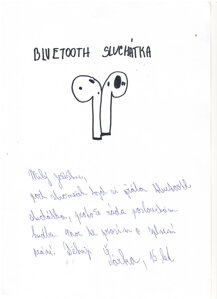 BLUETOOTH SLUCHÁTKA
Milý Ježíšku,
pod stromeček bych si přála bluetooth
sluchátka, protože ráda poslouchám
hudbu. Moc tě prosím o splnění
přání. Děkuji Šárka, 15 let